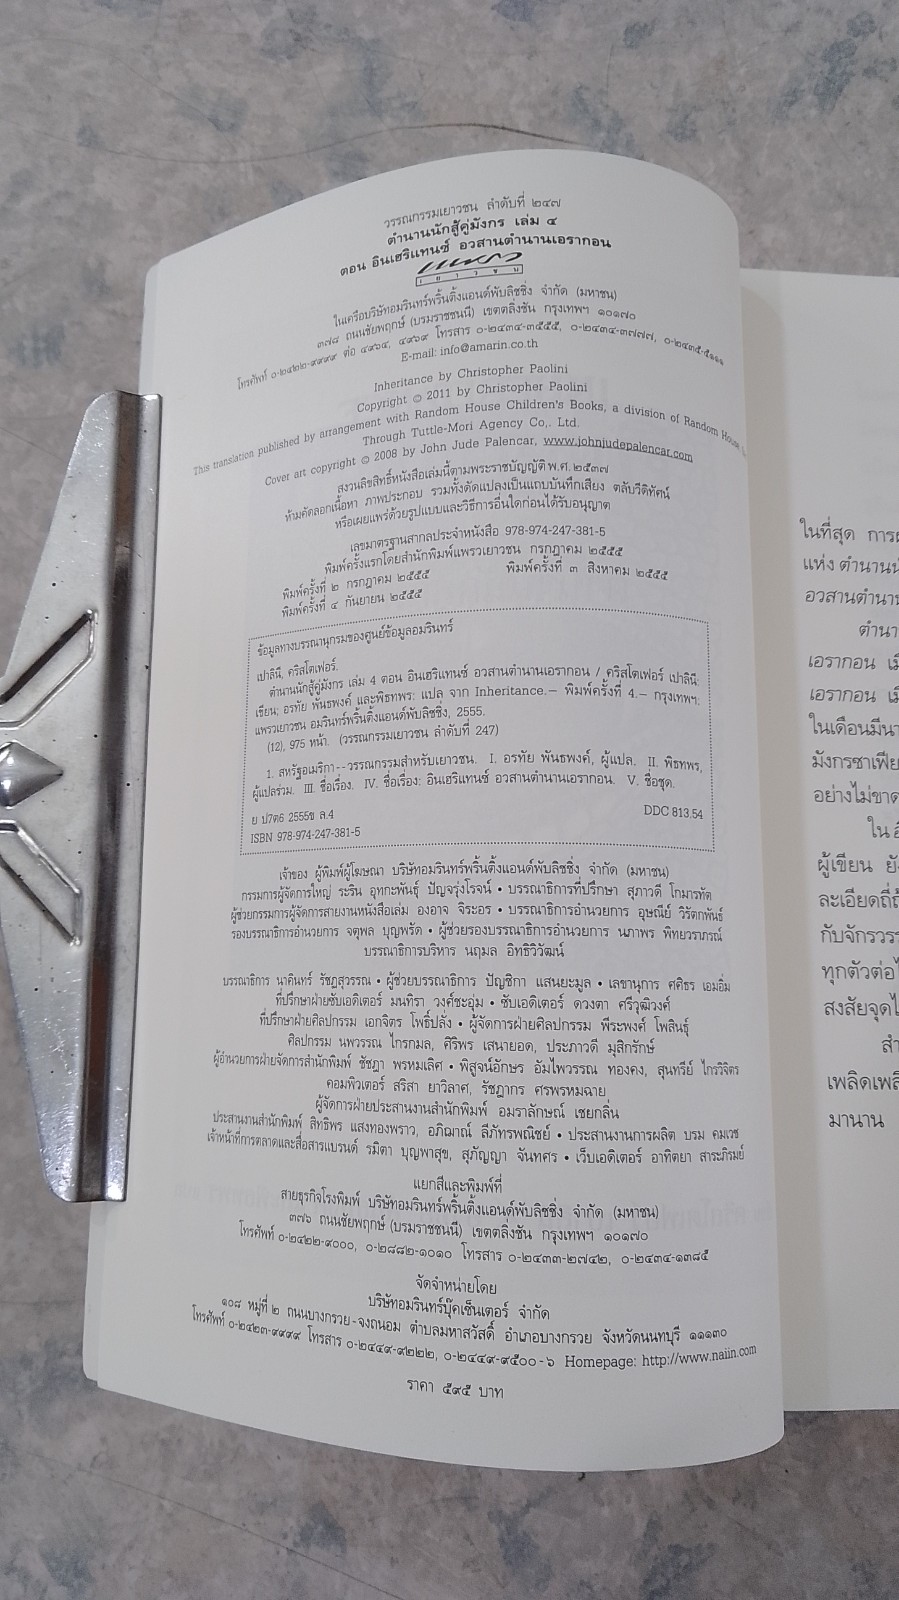 วรรณกรรมเยาวชน ลำดับที่ ๒๔๗
ตำนานนักสู้คู่มังกร เล่ม ๔
ตอน อินเฮริแทนซ์ อวสานตำนานเอรากอน
แพรว
เยาวชน
ในเครือบริษัทอมรินทร์พริ้นติ้งแอนด์พับลิชชิ่ง จำกัด (มหาชน)
๓๗๘ ถนนชัยพฤกษ์ (บรมราชชนนี) เขตตลิ่งชัน กรุงเทพฯ ๑๐๑๗๐
โทรศัพท์ ๐-๒๔๒๒-๙๙๙๙ ต่อ ๔๙๖๔, ๔๙๖๙ โทรสาร ๐-๒๔๓๔-๓๕๕๕, ๐-๒๔๓๔-๓๗๗๗, ๐-๒๔๓๕-๕๑๑๑
E-mail: info@amarin.co.th
Inheritance by Christopher Paolini
Copyright © 2011 by Christopher Paolini
This translation published by arrangement with Random House Children's Books, a division of Random House
Through Tuttle-Mori Agency Co,. Ltd.
Cover art copyright © 2008 by John Jude Palencar, www.johnjudepalencar.com
สงวนลิขสิทธิ์หนังสือเล่มนี้ตามพระราชบัญญัติ พ.ศ. ๒๕๓๗
ห้ามคัดลอกเนื้อหา ภาพประกอบ รวมทั้งดัดแปลงเป็นแถบบันทึกเสียง ตลับวีดิทัศน์
หรือเผยแพร่ด้วยรูปแบบและวิธีการอื่นใดก่อนได้รับอนุญาต
เลขมาตรฐานสากลประจำหนังสือ 978-974-247-381-5
พิมพ์ครั้งแรกโดยสำนักพิมพ์แพรวเยาวชน กรกฎาคม ๒๕๕๕
พิมพ์ครั้งที่ ๒ กรกฎาคม ๒๕๕๕ พิมพ์ครั้งที่ ๓ สิงหาคม ๒๕๕๕
พิมพ์ครั้งที่ ๔ กันยายน ๒๕๕๕
ข้อมูลทางบรรณานุกรมของศูนย์ข้อมูลอมรินทร์
เปาลินี, คริสโตเฟอร์.
ตำนานนักสู้คู่มังกร เล่ม 4 ตอน อินเฮริแทนซ์ อวสานตำนานเอรากอน / คริสโตเฟอร์ เปาลินี:
เขียน; อรทัย พันธพงค์ และพิธทพร: แปล จาก Inheritance.— พิมพ์ครั้งที่ 4.— กรุงเทพฯ:
แพรวเยาวชน อมรินทร์พริ้นติ้งแอนด์พับลิชชิ่ง, 2555.
(12), 975 หน้า. (วรรณกรรมเยาวชน ลำดับที่ 247)
1. สหรัฐอเมริกา--วรรณกรรมสำหรับเยาวชน. I. อรทัย พันธพงค์, ผู้แปล. II. พิธทพร,
ผู้แปลร่วม. III. ชื่อเรื่อง. IV. ชื่อเรื่อง: อินเฮริแทนซ์ อวสานตำนานเอรากอน. V. ชื่อชุด.
ย ป7ต6 2555ข ล.4 DDC 813.54
ISBN 978-974-247-381-5
เจ้าของ ผู้พิมพ์ผู้โฆษณา บริษัทอมรินทร์พริ้นติ้งแอนด์พับลิชชิ่ง จำกัด (มหาชน)
กรรมการผู้จัดการใหญ่ ระริน อุทกะพันธุ์ ปัญจรุ่งโรจน์ • บรรณาธิการที่ปรึกษา สุภาวดี โกมารทัต
ผู้ช่วยกรรมการผู้จัดการสายงานหนังสือเล่ม องอาจ จิระอร • บรรณาธิการอำนวยการ อุษณีย์ วิรัตกพันธ์
รองบรรณาธิการอำนวยการ จตุพล บุญพรัด • ผู้ช่วยรองบรรณาธิการอำนวยการ นภาพร พิทยวราภรณ์
บรรณาธิการบริหาร นฤมล อิทธิวิวัฒน์
บรรณาธิการ นาคินทร์ รัชฎสุวรรณ • ผู้ช่วยบรรณาธิการ ปัญชิกา แสนยะมูล • เลขานุการ ศศิธร เอมอิ่ม
ที่ปรึกษาฝ่ายซับเอดิเตอร์ มนทิรา วงศ์ชะอุ่ม • ซับเอดิเตอร์ ดวงตา ศรีวุฒิวงศ์
ที่ปรึกษาฝ่ายศิลปกรรม เอกจิตร โพธิ์ปลั่ง • ผู้จัดการฝ่ายศิลปกรรม พีระพงศ์ โพสินธุ์
ศิลปกรรม นพวรรณ ไกรกมล, ศิริพร เสนายอด, ประภาวดี มุสิกรักษ์
ผู้อำนวยการฝ่ายจัดการสำนักพิมพ์ ชัชฎา พรหมเลิศ • พิสูจน์อักษร อัมไพวรรณ ทองคง, สุนทรีย์ ไกรวิจิตร
คอมพิวเตอร์ สริสา ยาวิลาศ, รัชฎากร ศรพรหมฉาย
ผู้จัดการฝ่ายประสานงานสำนักพิมพ์ อมราลักษณ์ เชยกลิ่น
ประสานงานสำนักพิมพ์ สิทธิพร แสงทองพราว, อภิฌาณ์ ลีภัทรพณิชย์ • ประสานงานการผลิต บรม คมเวช
เจ้าหน้าที่การตลาดและสื่อสารแบรนด์ รมิตา บุญพาสุข, สุภัญญา จันทศร • เว็บเอดิเตอร์ อาทิตยา สาระภิรมย์
แยกสีและพิมพ์ที่
สายธุรกิจโรงพิมพ์ บริษัทอมรินทร์พริ้นติ้งแอนด์พับลิชชิ่ง จำกัด (มหาชน)
๓๗๖ ถนนชัยพฤกษ์ (บรมราชชนนี) เขตตลิ่งชัน กรุงเทพฯ ๑๐๑๗๐
โทรศัพท์ ๐-๒๔๒๒-๙๐๐๐, ๐-๒๘๘๒-๑๐๑๐ โทรสาร ๐-๒๔๓๓-๒๗๔๒, ๐-๒๔๓๔-๑๓๘๕
จัดจำหน่ายโดย
บริษัทอมรินทร์บุ๊คเซ็นเตอร์ จำกัด
๑๐๘ หมู่ที่ ๒ ถนนบางกรวย-จงถนอม ตำบลมหาสวัสดิ์ อำเภอบางกรวย จังหวัดนนทบุรี ๑๑๑๓๐
โทรศัพท์ ๐-๒๔๒๓-๙๙๙๙ โทรสาร ๐-๒๔๔๙-๙๒๒๒, ๐-๒๔๔๙-๙๕๐๐-๖ Homepage: http://www.naiin.com
ราคา ๕๙๕ บาท
ในที่สุด
แห่ง ตำนาน
อวสานตำนาน
เอรากอน
เอรากอน
มังกรซาเฟีย
อย่างไม่ขาด
ใน
ผู้เขียน
กับจักรวรร
สงสัยจุด
มานาน